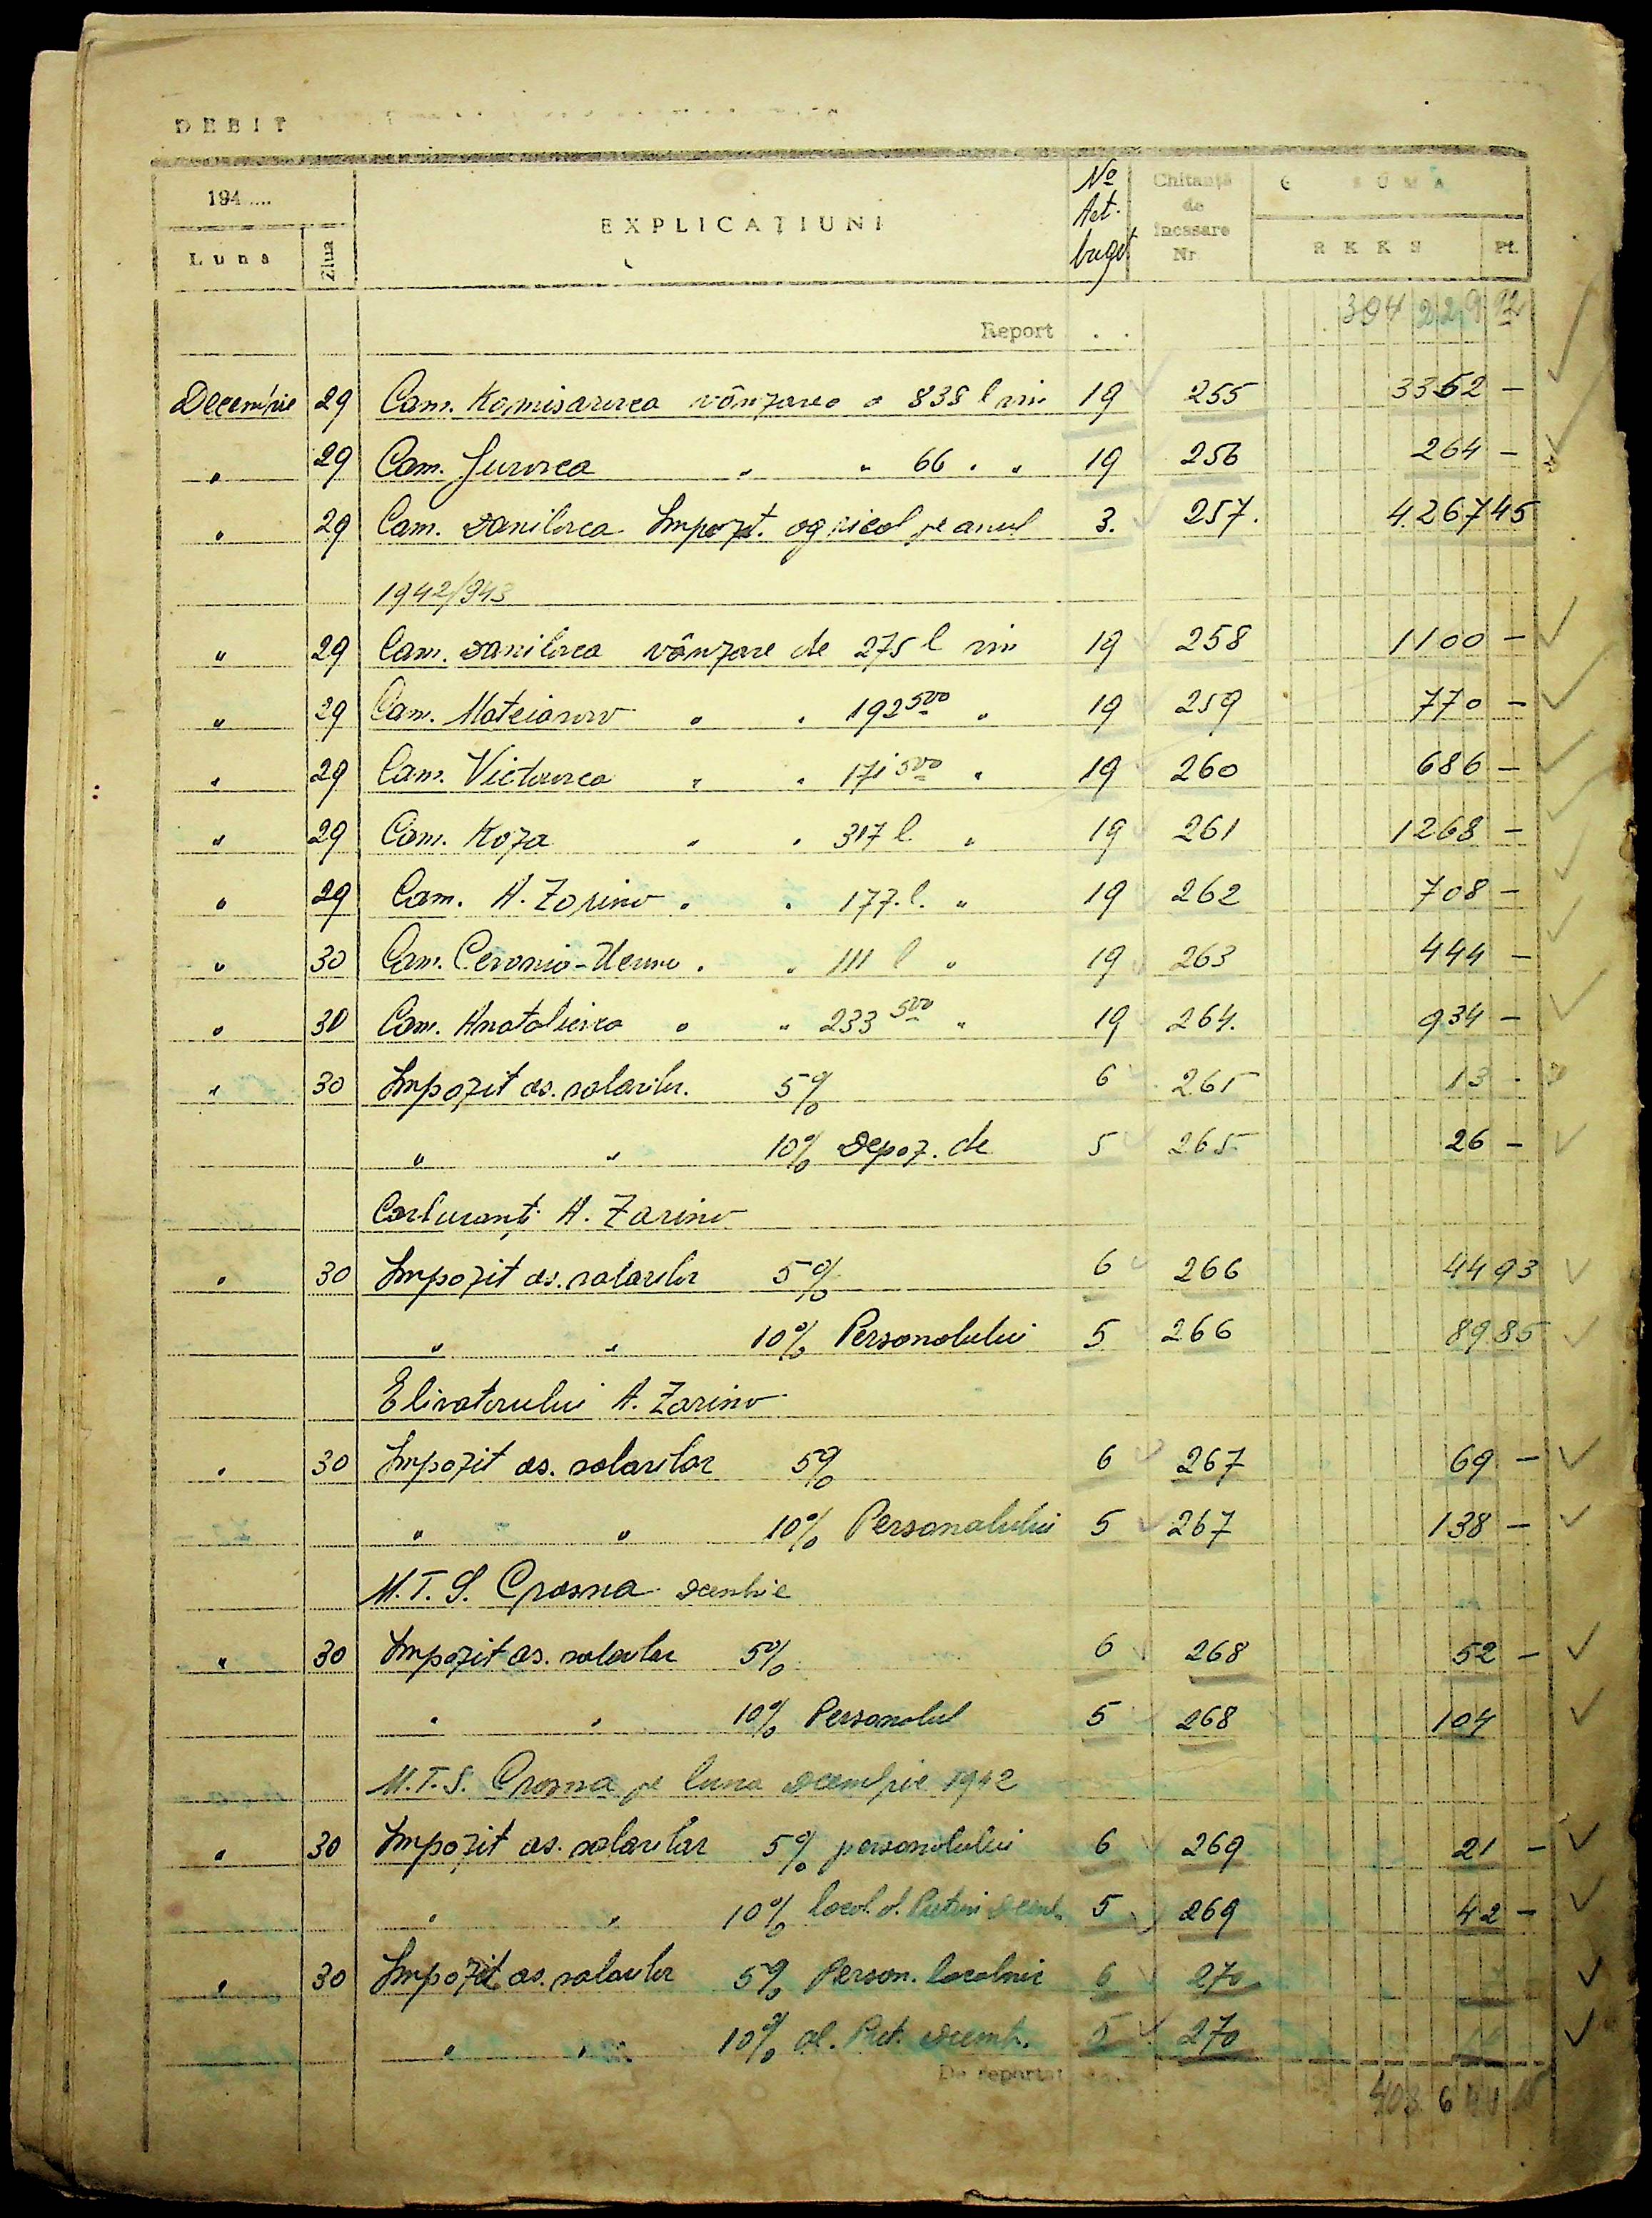 DEBIT
194....
Luna
Ziua
EXPLICAȚIUNI
No Art. buget
Chitanță de încasare Nr
SUMA
RKKS
Pf.
Report . . 394 229 92
Decembrie 29 Com. Komisarovca vânzarea a 838 l vin 19 255 3352 –
" 29 Com. Jurovca " " 66 " " 19 256 264 –
" 29 Com. Danilovca Impozit. agricol pe anul 3. 257. 4.267 45
1942/943
" 29 Com. Danilovca vânzare de 275 l vin 19 258 1100 –
" 29 Com. " " 192 500 " 19 259 770 –
" 29 Com. Victorovca " " 171 500 " 19 260 686 –
" 29 Com. Koza " " 317 l. " 19 261 1268 –
" 29 Com. A. Zarino " " 177. l. " 19 262 708 –
" 30 Com. " " 111 l " 19 263 444 –
" 30 Com. Anatolievca " " 233 500 " 19 264. 934 –
" 30 Impozit as. salarilor. 5% 6 265 13 -
" " 10% Depoz. de 5 265 26 –
Carburanți A. Zarino
" 30 Impozit as. salarilor 5% 6 266 44 93
" " 10% Personalului 5 266 89.85
Elivatorului A. Zarino
" 30 Impozit as. salarilor 5% 6 267 69 –
" " 10% Personalului 5 267 138 –
M.T.S. Crasna
" 30 Impozit as. salarilor 5% 6 268 52 –
" " 10% Personalul 5 268 104
M.T.S. Crasna pe luna Decembrie 1942
" 30 Impozit as. salarilor 5% personalului 6 269 21 –
" " 10% 5 269 42 –
" 30 Impozit as. salarilor 5% Person. 6 270
" " 10% 5 270
De reportat